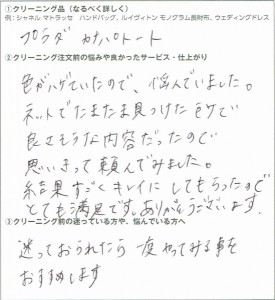 ①クリーニング品（なるべく詳しく）
例：シャネル マトラッセ　ハンドバッグ、ルイヴィトン モノグラム長財布、ウェディングドレス
プラダ　カナパトート
②クリーニング注文前の悩みや良かったサービス・仕上がり
色がハゲていたので、悩んでいました。
ネットでたまたま見つけただけで
良さそうな内容だったので
思いきって頼んでみました。
結果すごくキレイにしてもらったので
とても満足です。ありがとうございます。
③クリーニング前の迷っている方や、悩んでいる方へ
迷っておられたら一度やってみる事を
おすすめします